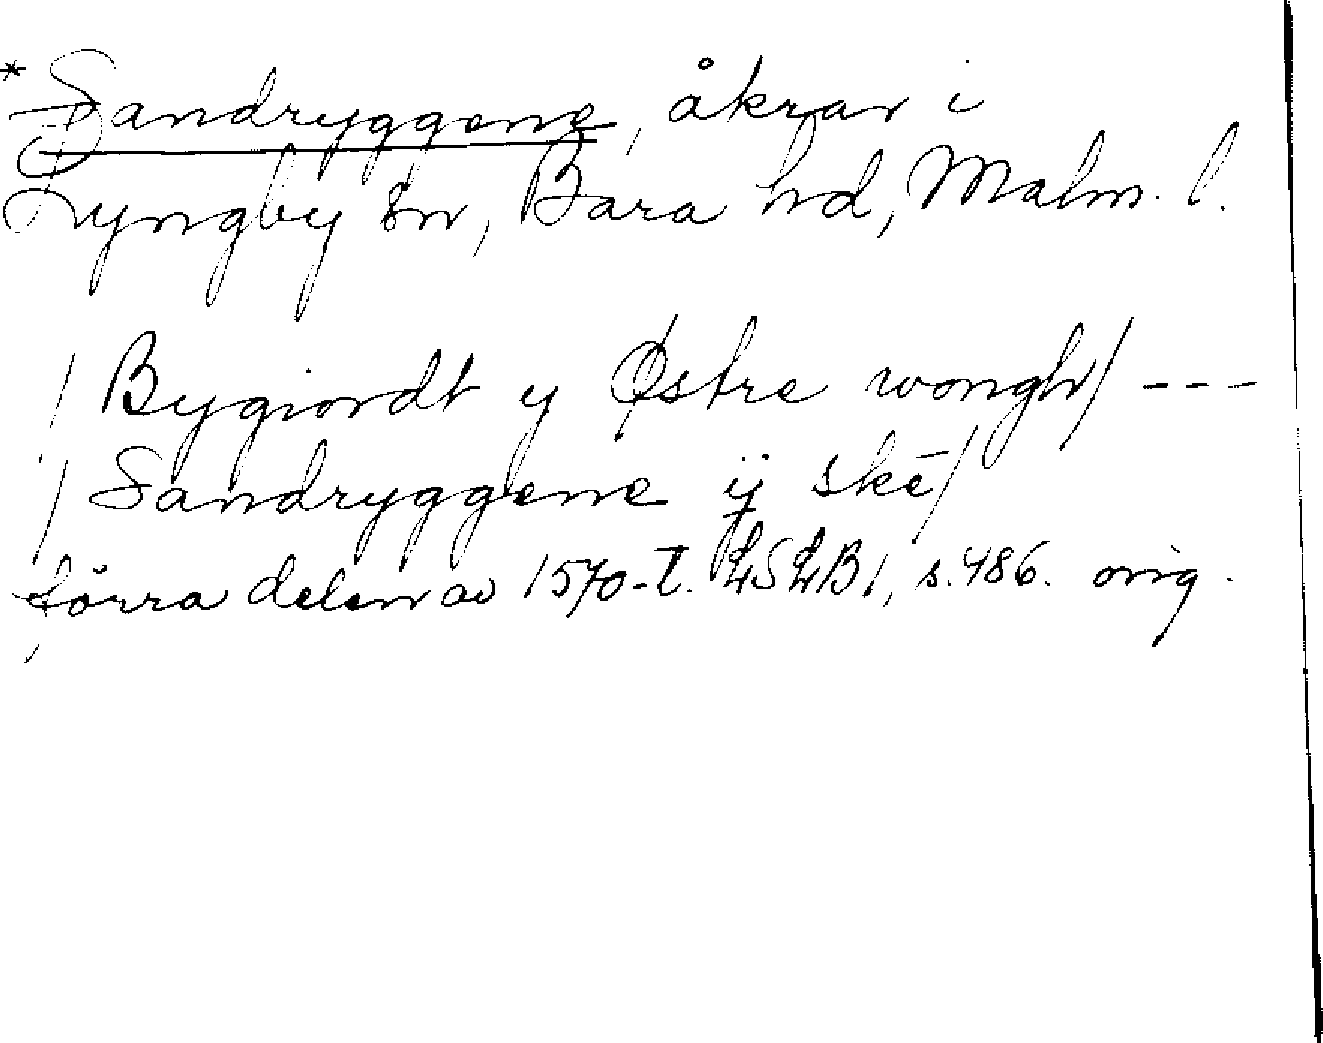 *Sandryggene, åkrar i
Lyngby sn, Bara hd, Malm. l.
/ Bygiordt y Østre wongh / ---
/ Sandryggene ij skē /
förra delen av 1570-t. LSLB 1, s. 486. orig.